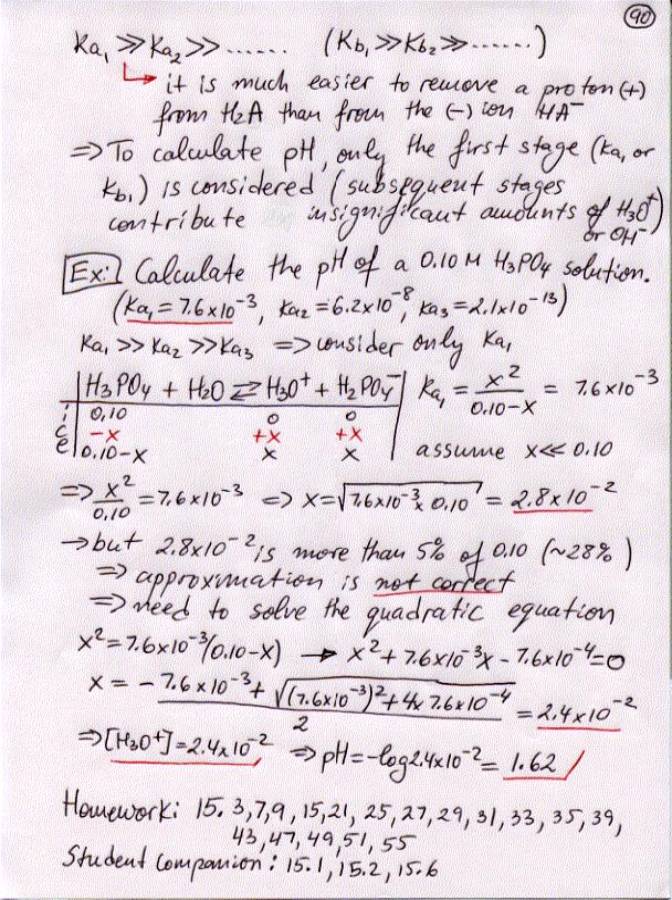 90
Ka₁ ≫ Ka₂ ≫ ...... (Kb₁ ≫ Kb₂ ≫ ......)
↳ it is much easier to remove a proton (+)
from H₂A than from the (-) ion HA⁻
⇒ To calculate pH, only the first stage (Ka₁ or
Kb₁) is considered (subsequent stages
contribute insignificant amounts of H₃O⁺)
or OH⁻
Ex: Calculate the pH of a 0.10 M H₃PO₄ solution.
(Ka₁ = 7.6x10⁻³, Ka₂ = 6.2x10⁻⁸, Ka₃ = 2.1x10⁻¹³)
Ka₁ >> Ka₂ >> Ka₃ ⇒ consider only Ka₁
H₃PO₄ + H₂O ⇄ H₃O⁺ + H₂PO₄⁻ Ka₁ = x²/0.10-x = 7.6x10⁻³
i 0.10 0 0
c -x +x +x
e 0.10-x x x assume x << 0.10
⇒ x²/0.10 = 7.6x10⁻³ ⇒ x = √7.6x10⁻³x 0.10 = 2.8x10⁻²
→ but 2.8x10⁻² is more than 5% of 0.10 (~28%)
⇒ approximation is not correct
⇒ need to solve the quadratic equation
x² = 7.6x10⁻³(0.10-x) → x² + 7.6x10⁻³x - 7.6x10⁻⁴ = 0
x = -7.6x10⁻³ + √(7.6x10⁻³)² + 4x 7.6x10⁻⁴ / 2 = 2.4x10⁻²
⇒ [H₃O⁺] = 2.4x10⁻² ⇒ pH = -log2.4x10⁻² = 1.62
Homework: 15. 3,7,9, 15,21, 25, 27, 29, 31, 33, 35, 39,
43, 47, 49, 51, 55
Student Companion: 15.1, 15.2, 15.6